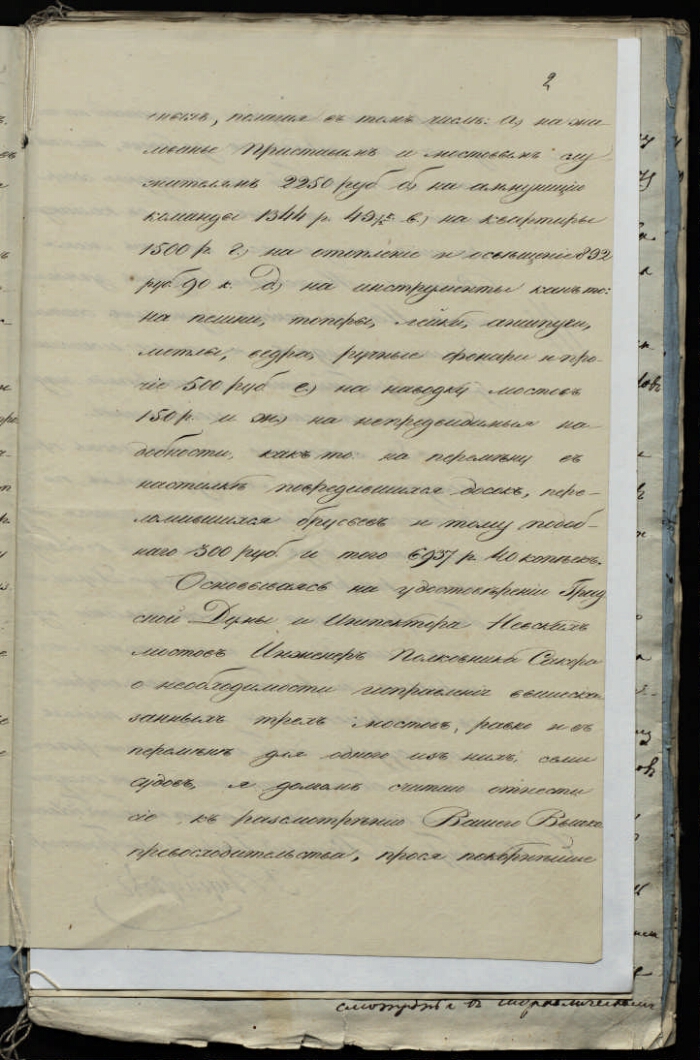 2
ныхъ, полагая въ томъ числѣ: а) на жа-
лованье Приставамъ и мостовымъ слу
жителямъ 2250 руб б) на аммуницію
команды 1344 р. 49½ к. в.) на квартиры
1500 р. г.) на отопленіе и освѣщеніе 892
руб 90 к. д) на инструменты какъ то:
на пешни, топоры, лейки,
метлы, ведра, ручные фонари и про-
чіе 500 руб е) на наводку мостовъ
150 р. и ж) на непредвидимыя на-
добности, какъ то: на перемѣну въ
настилкѣ повредившихся досокъ, пере-
ломившихся брусьевъ и тому подоб-
наго 300 руб. и того 6937 р. 40 копѣекъ.
Основываясь на удостовѣреніи Град
ской Думы и Инспектора Невскихъ
мостовъ Инженеръ Полковника
о необходимости исправленія вышеска
занныхъ трехъ мостовъ, равно и въ
перемѣнѣ для одного изъ нихъ, семи
судовъ, я долгомъ считаю отнести
сіе къ разсмотрѣнію Вашего Высоко
превосходительства, прося покорнѣйше